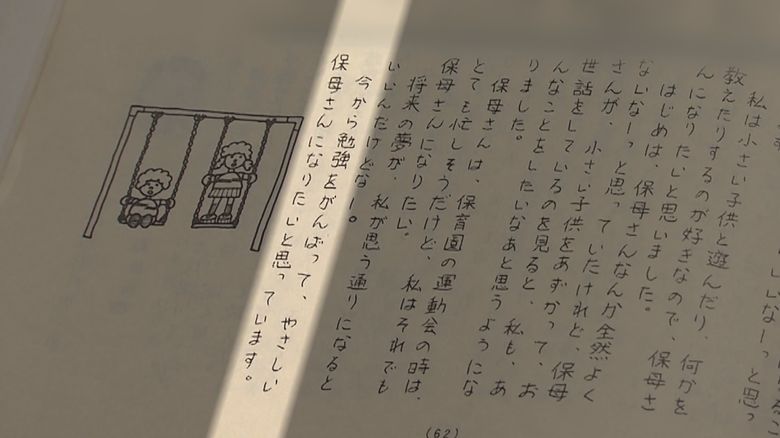 いなーっと思っ
私は小さい子供と遊んだり、何かを
教えたりするのが好きなので、保母さ
んになりたいと思いました。
はじめは、保母さんなんか全然よく
ないなーっと思っていたけれど、保母
さんが、小さい子供をあずかって、お
世話をしているのを見ると、私も、あ
んなことをしたいなあと思うようにな
りました。
保母さんは、保育園の運動会の時は、
とても忙しそうだけど、私はそれでも
保母さんになりたい。
将来の夢が、私が思う通りになると
いいんだけどなー。
今から勉強をがんばって、やさしい
保母さんになりたいと思っています。
(62)